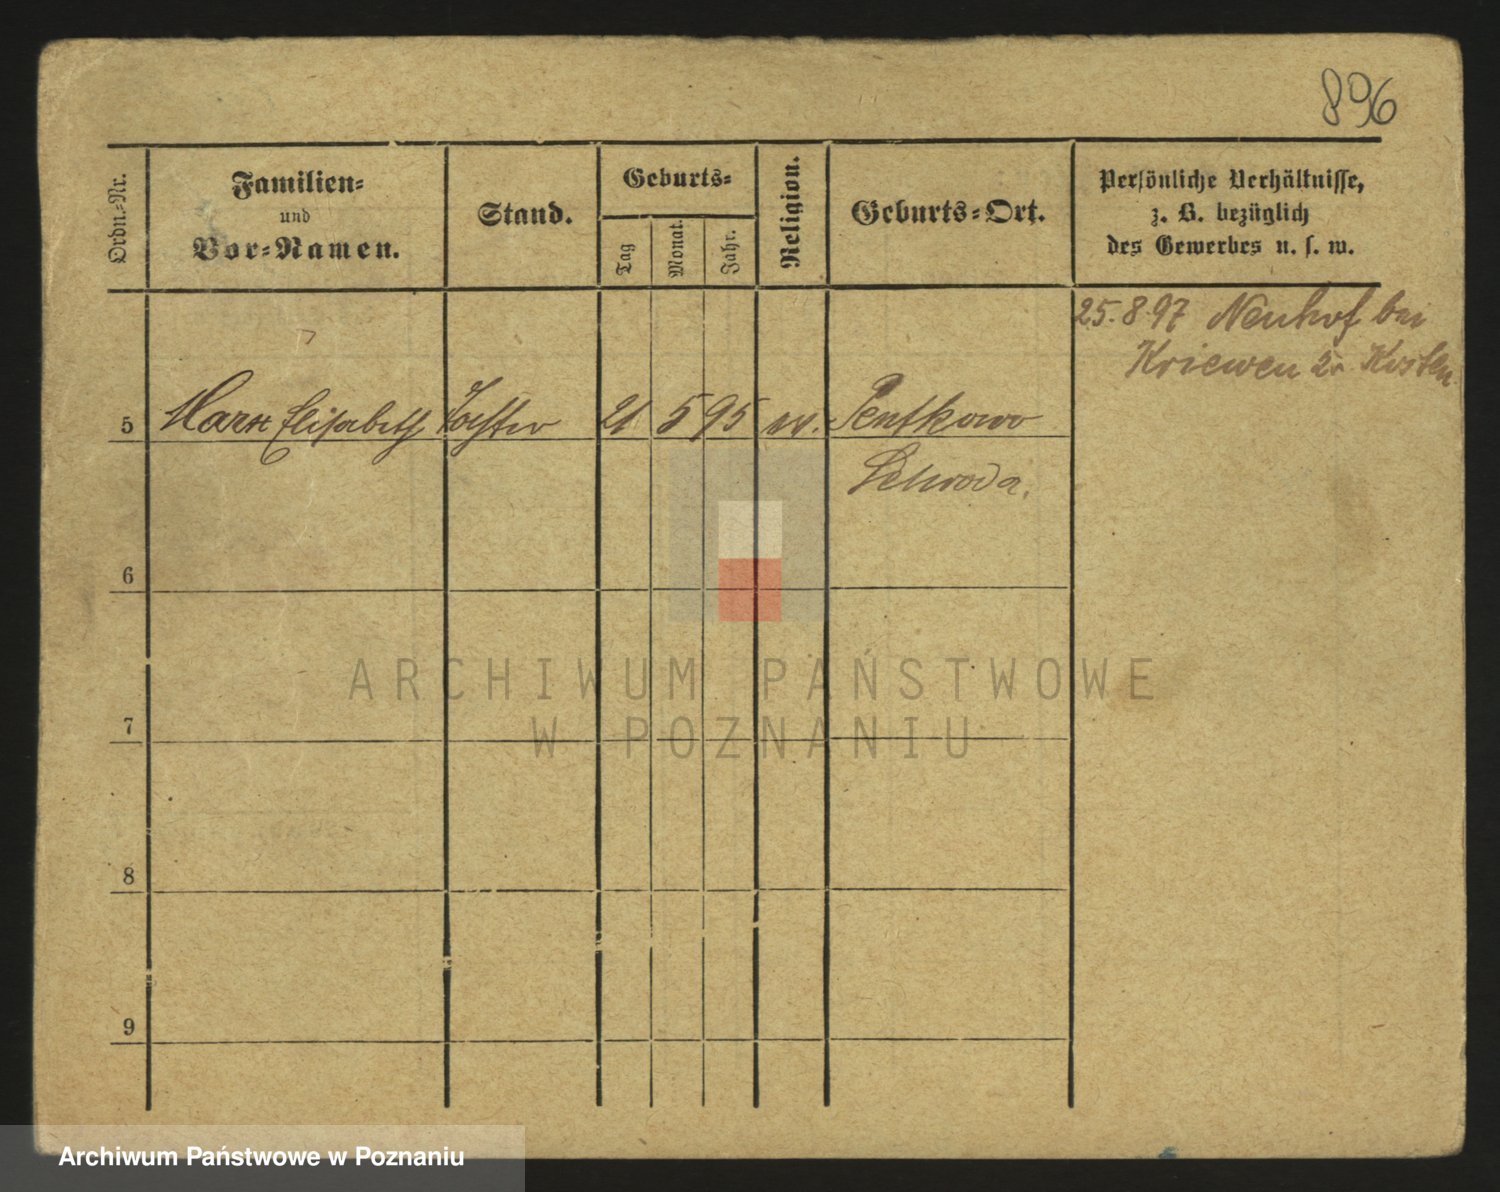 896
Ordn.-Nr.
Familien-
und
Vor-Namen.
Stand.
Geburts-
Tag
Monat.
Jahr.
Religion.
Geburts-Ort.
Persönliche Verhältnisse,
z. B. bezüglich
des Gewerbes u. s. w.
25.8.97 Neuhof bei
Kriewen Kr Kosten
5 Elisabeth Tochter 21 5 95 ev. Pentkowo
Schroda.
6
7
8
9
ARCHIWUM PAŃSTWOWE
W POZNANIU
Archiwum Państwowe w Poznaniu